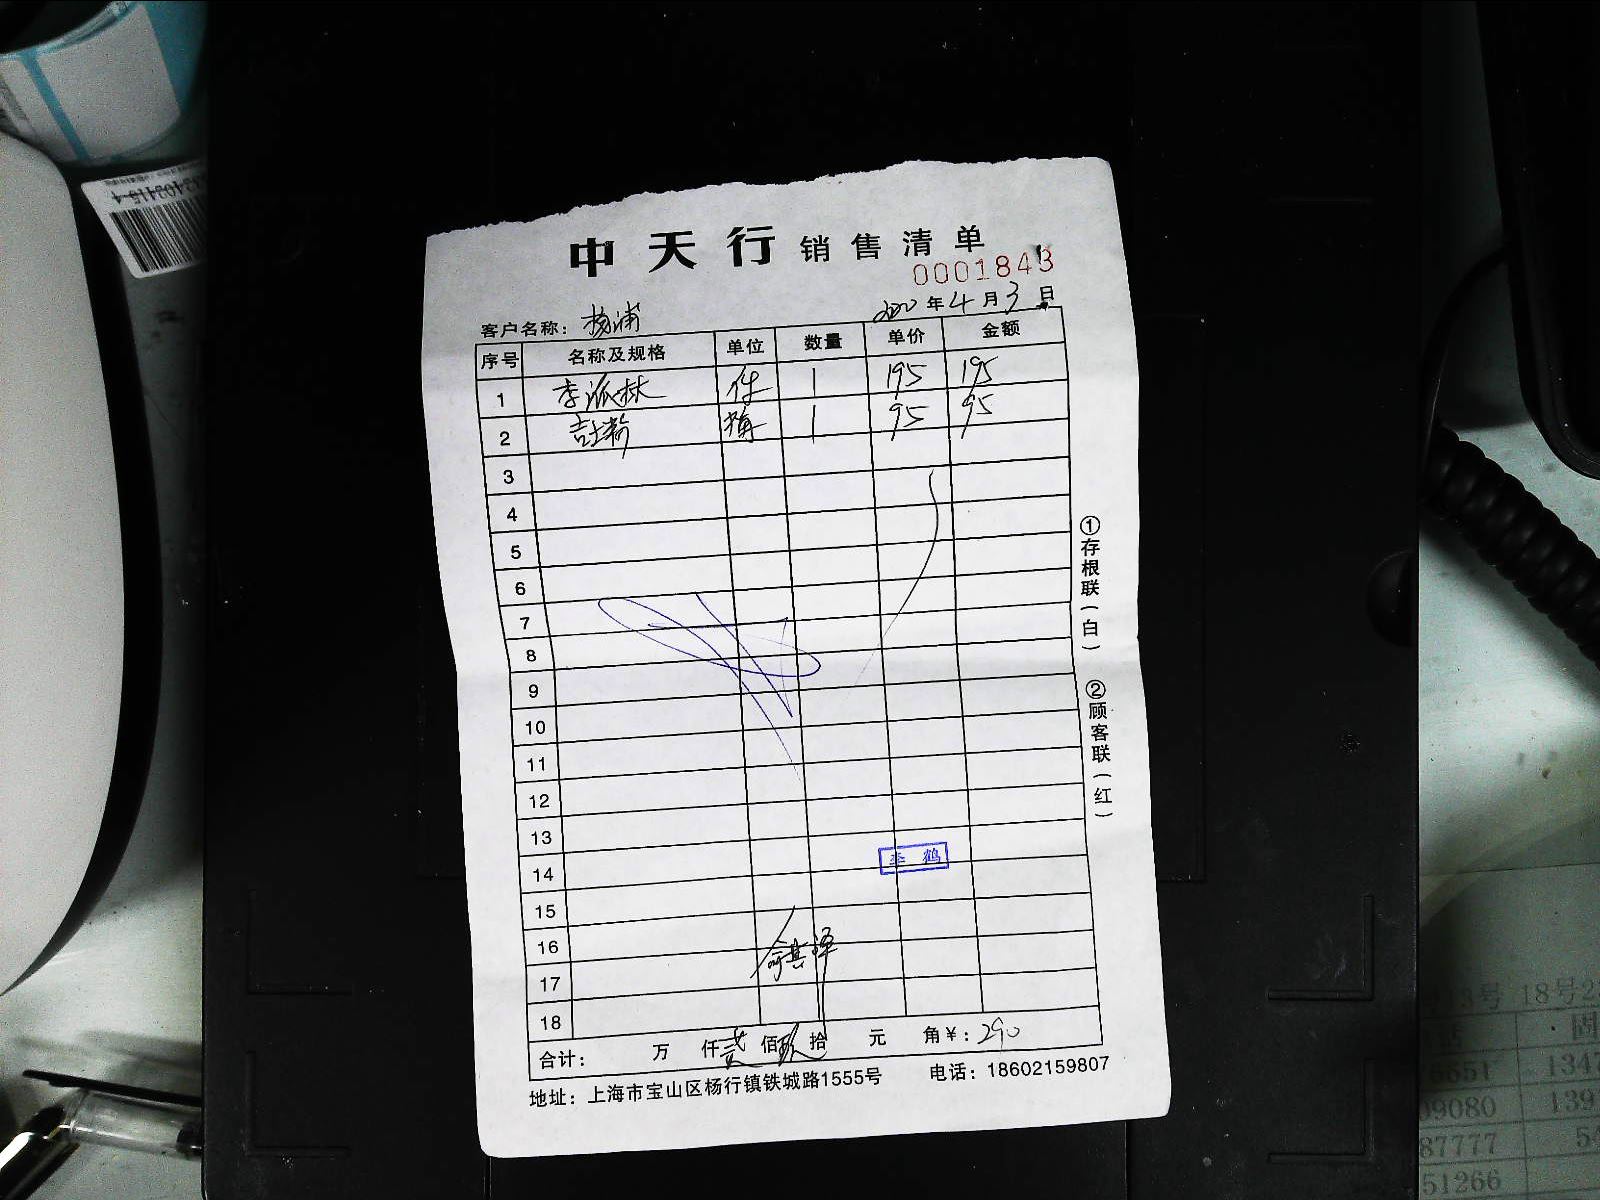 中天行销售清单
0001843
年4月3日
客户名称：杨浦
序号 名称及规格 单位 数量 单价 金额
1 件 1 195 195
2 1 95 95
3
4
5
6
7
8
9
10
11
12
13
14
李鹤
15
16
17
18
合计： 万 仟贰佰玖拾 元 角¥：290
地址：上海市宝山区杨行镇铁城路1555号 电话：18602159807
①存根联（白）
②顾客联（红）
3403415-4
18号
1347
09080
139
87777
51266